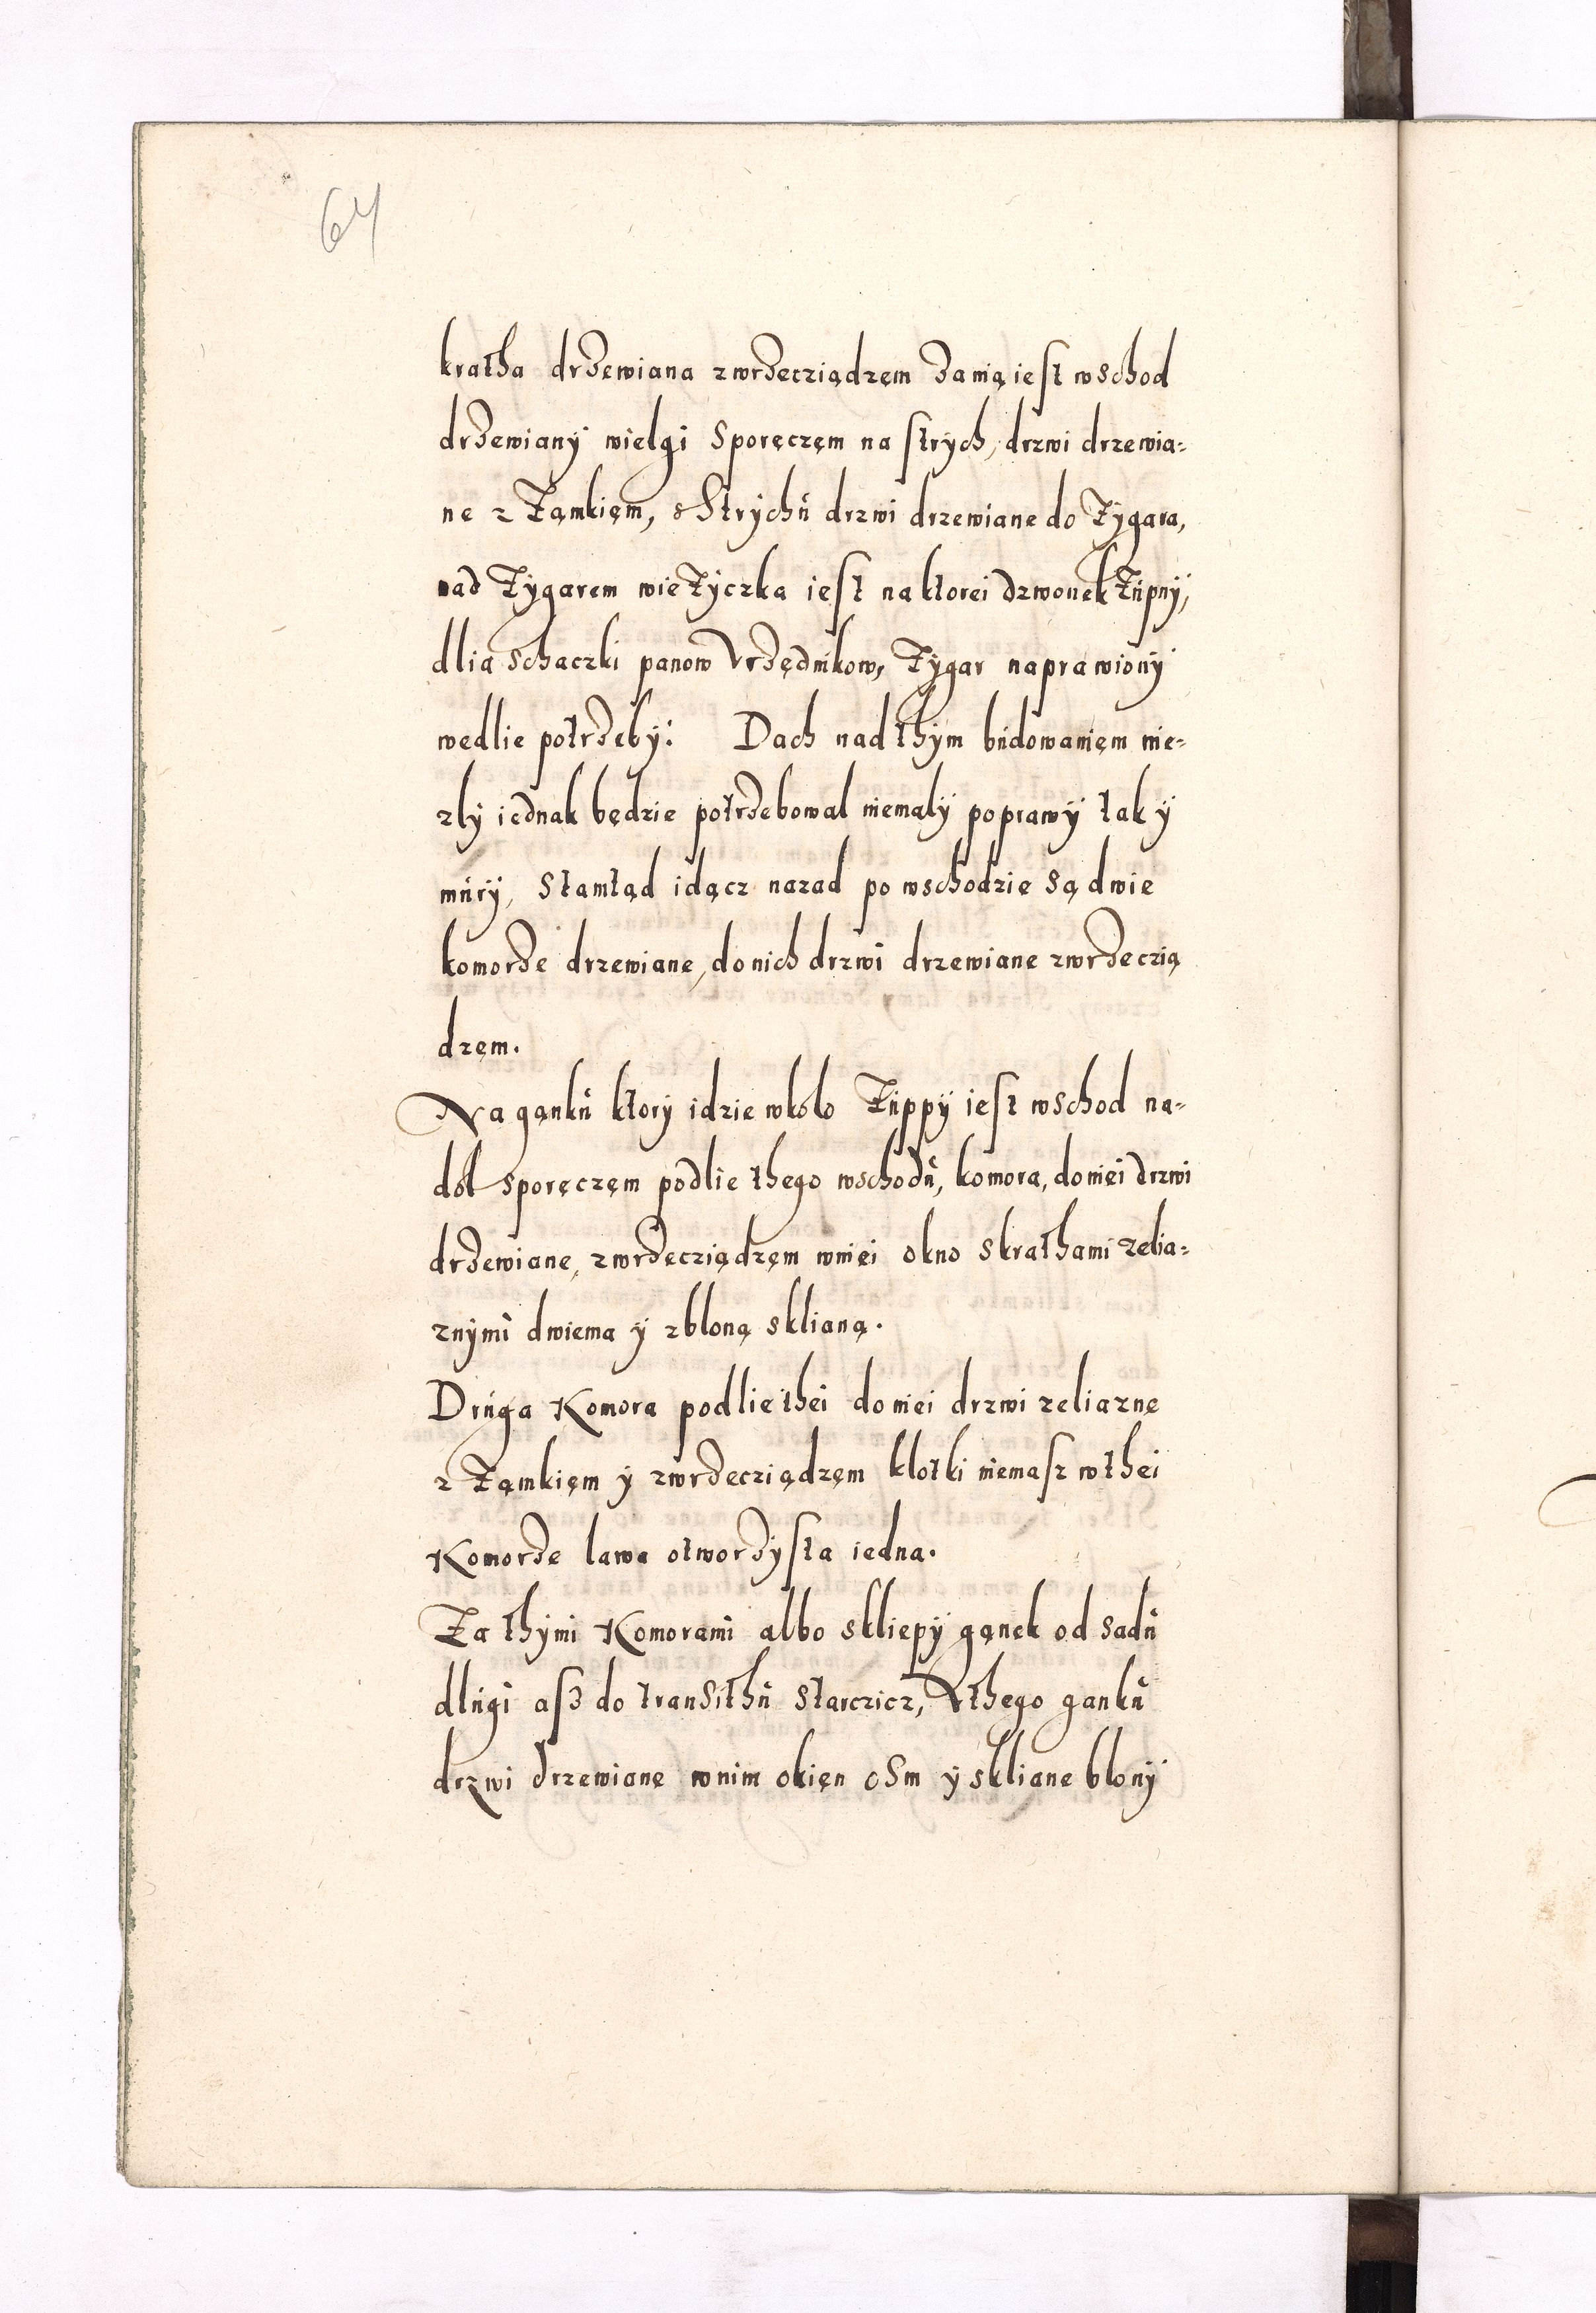 64
kratha drzewiana zwrzecziądzęm Za nią iest wschod
drzewiany wielgi Sporęczęm na strych, drzwi drzewia=
ne z Zamkięm, s Strychu drzwi drzewiane do Zygara,
nad Zygarem wieZyczka iest na ktorei dzwonek Zupny,
dlia Schaczki panow Vrzędnikow, Zygar naprawiony
wedlie potrzeby: Dach nad thym budowanięm nie=
zly iednak będzie potrzebowal niemaly poprawy tak y
mury, Stamtąd idącz nazad po wschodzie Są dwie
komorze drzewiane, do nich drzwi drzewiane zwrzeczią
dzęm.
Na gąnku ktory idzie wkolo Zuppy iest wschod na=
dol Sporęczęm podlie thego wschodu, komora, do niei drzwi
drzewiane, zwrzecziądzęm wniei okno Skrathami zelia=
znymi dwiema y zbloną sklianą.
Druga Komora podlie thei do niei drzwi zeliazne
z Zamkięm y zwrzecziądzęm klotki niemasz wthei
Komorze lawa otworzysta iedna.
Za thymi Komorami albo skliepy gąnek od Sadu
dlugi asz do transithu Starczicz, V thego ganku
drzwi drzewiane wnim okięn oSm y skliane blony